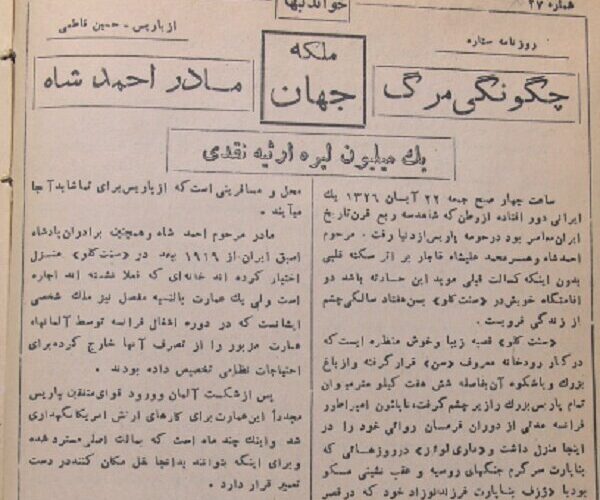 شماره ۲۷
خواندنیها
روزنامه ستاره
از پاریس - حسین فاطمی
چگونگی مرگ
ملکه
جهان
مادر احمد شاه
یك میلیون لیره ارثیه نقدی
ساعت چهار صبح جمعه ۲۲ آبان ۱۳۲۶ یك
ایرانی دور افتاده از وطن که شاهد سه ربع قرن تاریخ
ایران معاصر بود در حومه پاریس از دنیا رفت . مرحوم
احمد شاه و همسر محمد علیشاه قاجار بر اثر سکته قلبی
بدون اینکه کسالت قبلی موید این حادثه باشد در
اقامتگاه خویش در «سنت کلو» بسن هفتاد سالگی چشم
از زندگی فرو بست .
«سنت کلو» قصبه زیبا و خوش منظره ایست که
در کنار رودخانه معروف «سن» قرار گرفته و از باغ
بزرك و باشکوه آن بفاصله شش هفت کیلو متر میتوان
تمام پاریس بزرك را زیر چشم گرفت، ناپلئون امپراطور
فرانسه مدتی از دوران فرمان روائی خود را در
اینجا منزل داشت و «ماری لوئیز» در روزهائی که
بناپارت سرگرم جنگهای روسیه و عقب نشینی مسکو
بود با «ژزف بناپارت فرزند نوزاد خود که در قصر
محل و مسافرینی است که از پاریس برای تماشا بد آنجا
میآیند .
مادر مرحوم احمد شاه و همچنین برادران پادشاه
اسبق ایران از ۱۹۱۹ ببعد در «سنت کلو» منزل
اختیار کرده اند خانه‌ای که فعلا نشسته اند اجاره
است ولی یك عمارت بالنسبه مفصل نیز ملك شخصی
ایشانست که در دوره اشغال فرانسه توسط آلمانها،
عمارت مزبور را از تصرف آنها خارج کرده برای
احتیاجات نظامی تخصیص داده بودند .
پس از شکست آلمان و ورود قوای متفقین پاریس
مجددآ این عمارت برای کارهای ارتش امریکا نگهداری
شد و اینك چند ماه است که سالت اصلی مسترد شده
و برای اینکه بتوانند بدانجا نقل مکان کنند در دست
تعمیر قرار دارد .